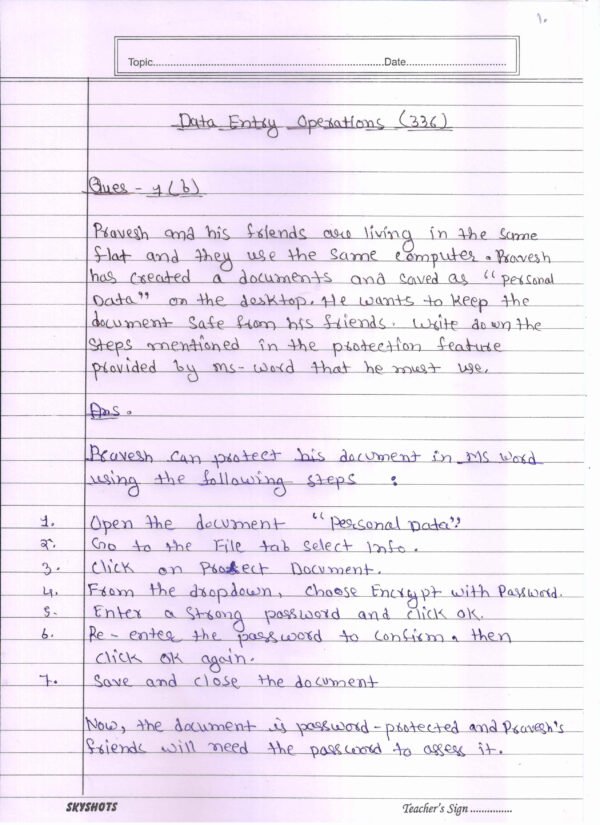 1.
Topic.......................................................Date.......................
Data Entry Operations (336)
Ques - 1 (b)
Pravesh and his friends are living in the same
flat and they use the same computer. Pravesh
has created a documents and saved as "Personal
Data" on the desktop. He wants to keep the
document safe from his friends. Write down the
Steps mentioned in the protection feature
provided by ms-word that he must use.
Ans.
Pravesh can protect his document in MS Word
using the following steps :
1. Open the document "Personal Data"
2. Go to the File tab select Info.
3. Click on Protect Document.
4. From the dropdown, choose Encrypt with Password.
5. Enter a strong password and click ok.
6. Re-enter the password to confirm. then
click ok again.
7. Save and close the document
Now, the document is password-protected and Pravesh's
friends will need the password to assess it.
SKYSHOTS Teacher's Sign ...............